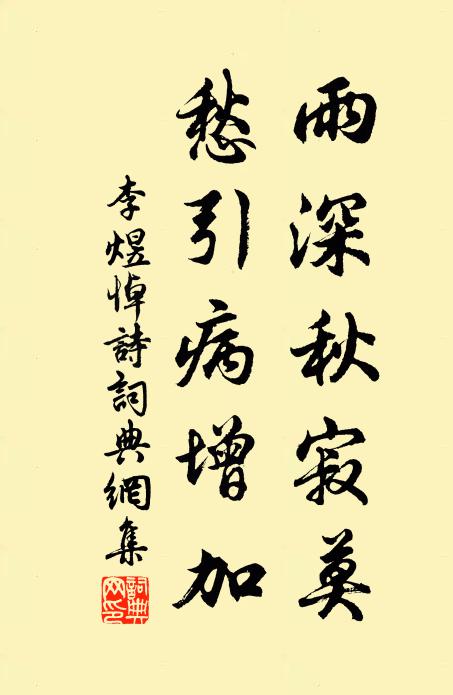 雨深秋寂莫
愁引病增加
李煜悼詩詞典網集
詞典網印